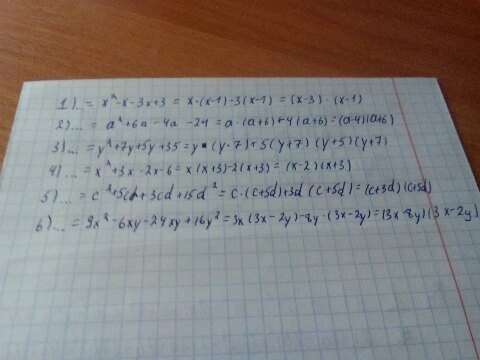 1)... = x² - x - 3x + 3 = x·(x-1) - 3(x-1) = (x-3)·(x-1)
2)... = a² + 6a - 4a - 24 = a·(a+6) + 4(a+6) = (a-4)(a+6)
3)... = y² + 7y + 5y + 35 = y·(y·7) + 5(y+7) (y+5)(y+7)
4)... = x² + 3x - 2x - 6 = x(x+3) - 2(x+3) = (x-2)(x+3)
5)... = c² + 5cd + 3cd + 15d² = c·(c+5d) + 3d(c+5d) = (c+3d)(c+5d)
6)... = 9x² - 6xy - 24xy + 16y² = 3x(3x-2y) - 8y·(3x-2y) = (3x-8y)(3x-2y)